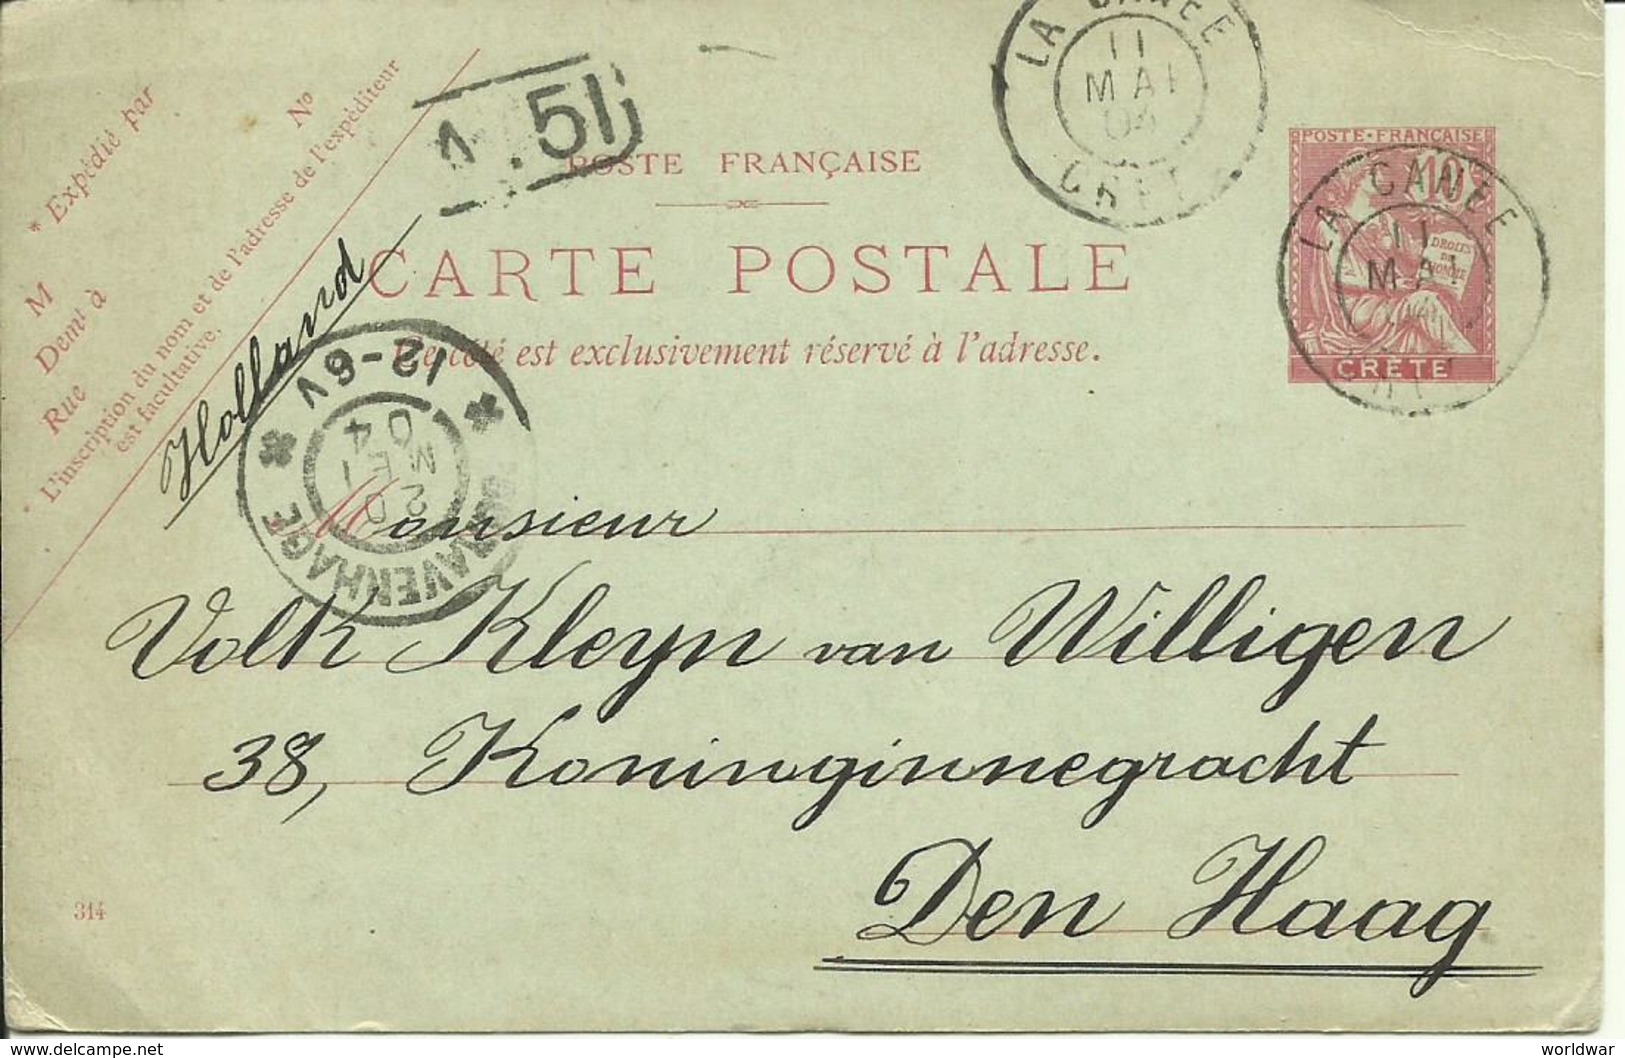 * Expédié par
Nº
M
Demt à
Rue
* L'inscription du nom et de l'adresse de l'expéditeur
est facultative.
Holland
51
POSTE FRANÇAISE
CARTE POSTALE
Ce côté est exclusivement réservé à l'adresse.
LA CANÉE
11
MAI
04
CRÈTE
POSTE·FRANÇAISE
10
DROITS
DE
L'HOMME
CRÈTE
LA CANÉE
11
MAI
12-6V
20
MEI
04
'S GRAVENHAGE
Monsieur
Volk Kleyn van Willigen
38, Koninginnegracht
Den Haag
314
www.delcampe.net
worldwar